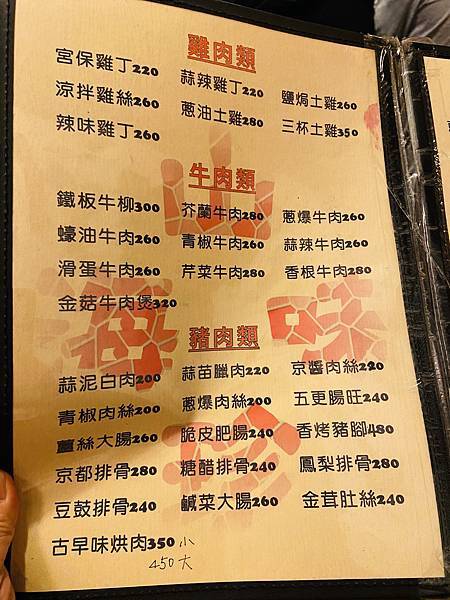 雞肉類
宮保雞丁220 蒜辣雞丁220 鹽焗土雞260
涼拌雞絲260 蔥油土雞280 三杯土雞350
辣味雞丁260
牛肉類
鐵板牛柳300 芥蘭牛肉280 蔥爆牛肉260
蠔油牛肉260 青椒牛肉260 蒜辣牛肉260
滑蛋牛肉260 芹菜牛肉280 香根牛肉280
金菇牛肉煲320
豬肉類
蒜泥白肉200 蒜苗臘肉220 京醬肉絲220
青椒肉絲200 蔥爆肉絲200 五更腸旺240
薑絲大腸260 脆皮肥腸240 香烤豬腳480
京都排骨280 糖醋排骨240 鳳梨排骨280
豆鼓排骨240 鹹菜大腸260 金茸肚絲240
古早味烘肉350 小
450大